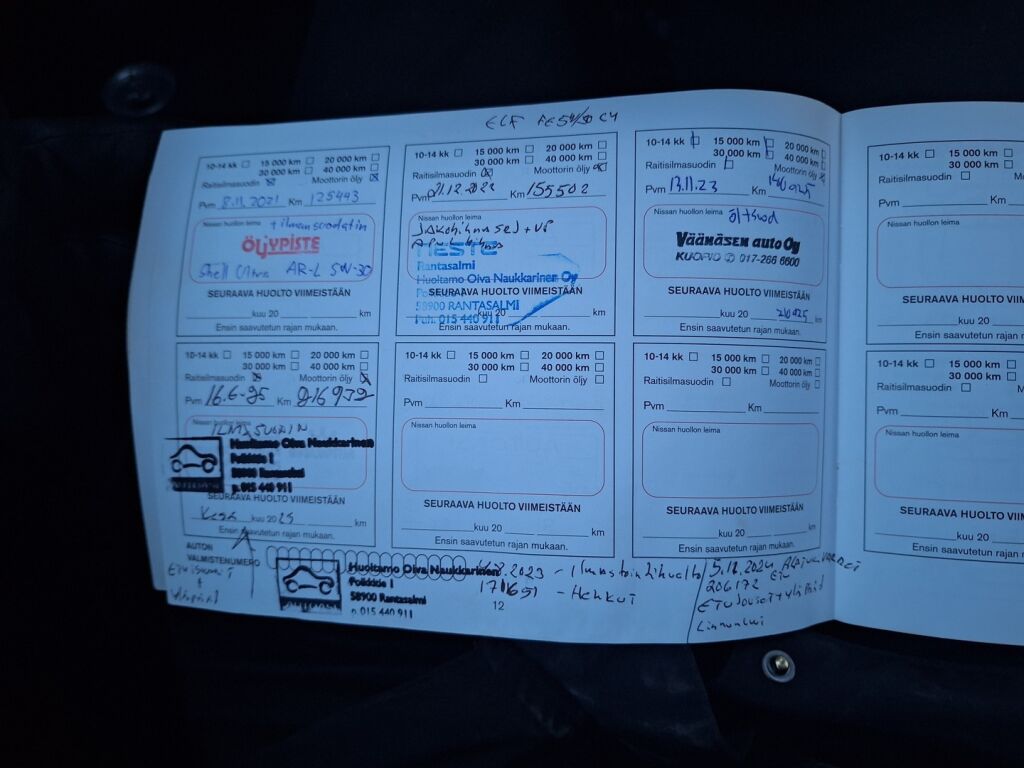 ELF
10-14 kk 15 000 km 20 000 km
30 000 km 40 000 km
Raitisilmasuodin Moottorin öljy
Pvm 8.11.2021 Km 125443
Nissan huollon leima + ilmansuodatin
ÖLJYPISTE
Shell Ultra AR-L 5W-30
SEURAAVA HUOLTO VIIMEISTÄÄN
kuu 20 km
Ensin saavutetun rajan mukaan.
10-14 kk 15 000 km 20 000 km
30 000 km 40 000 km
Raitisilmasuodin Moottorin öljy
Pvm 21.12.2022 Km 155502
Nissan huollon leima
Jakohihnased + VP
NESTE
Rantasalmi
Huoltamo Oiva Naukkarinen Oy
SEURAAVA HUOLTO VIIMEISTÄÄN
58900 RANTASALMI
kuu 20 km
Puh. 015 440 911
Ensin saavutetun rajan mukaan.
10-14 kk 15 000 km 20 000 km
30 000 km 40 000 km
Raitisilmasuodin Moottorin öljy
Pvm 13.11.23 Km
Nissan huollon leima
Väänäsen auto Oy
KUOPIO 017-266 6600
SEURAAVA HUOLTO VIIMEISTÄÄN
kuu 20 km
Ensin saavutetun rajan mukaan.
10-14 kk 15 000 km
30 000 km
Raitisilmasuodin
Pvm Km
Nissan huollon leima
SEURAAVA HUOLTO
kuu 20
Ensin saavutetun
10-14 kk 15 000 km 20 000 km
30 000 km 40 000 km
Raitisilmasuodin Moottorin öljy
Pvm 16.6-25 Km 216932
Nissan huollon leima
ILMASUODIN
Huoltamo Oiva Naukkarinen
Poikkitie 1
58900 Rantasalmi
p. 015 440 911
SEURAAVA HUOLTO VIIMEISTÄÄN
kuu 2025 km
Ensin saavutetun rajan mukaan.
10-14 kk 15 000 km 20 000 km
30 000 km 40 000 km
Raitisilmasuodin Moottorin öljy
Pvm Km
Nissan huollon leima
SEURAAVA HUOLTO VIIMEISTÄÄN
kuu 20 km
Ensin saavutetun rajan mukaan.
10-14 kk 15 000 km 20 000 km
30 000 km 40 000 km
Raitisilmasuodin Moottorin öljy
Pvm Km
Nissan huollon leima
SEURAAVA HUOLTO VIIMEISTÄÄN
kuu 20 km
Ensin saavutetun rajan mukaan.
10-14 kk 15 000 km
30 000 km
Raitisilmasuodin
Pvm Km
Nissan huollon leima
SEURAAVA HUOLTO
kuu 20
Ensin saavutetun
AUTON
VALMISTENUMERO
Huoltamo Oiva Naukkarinen
Poikkitie 1
58900 Rantasalmi
p. 015 440 911
2023 - Ilmastointihuolto
171651 - Hehkut
12
5.12.2024
206172 ETU
ETUJouset + yläpäät